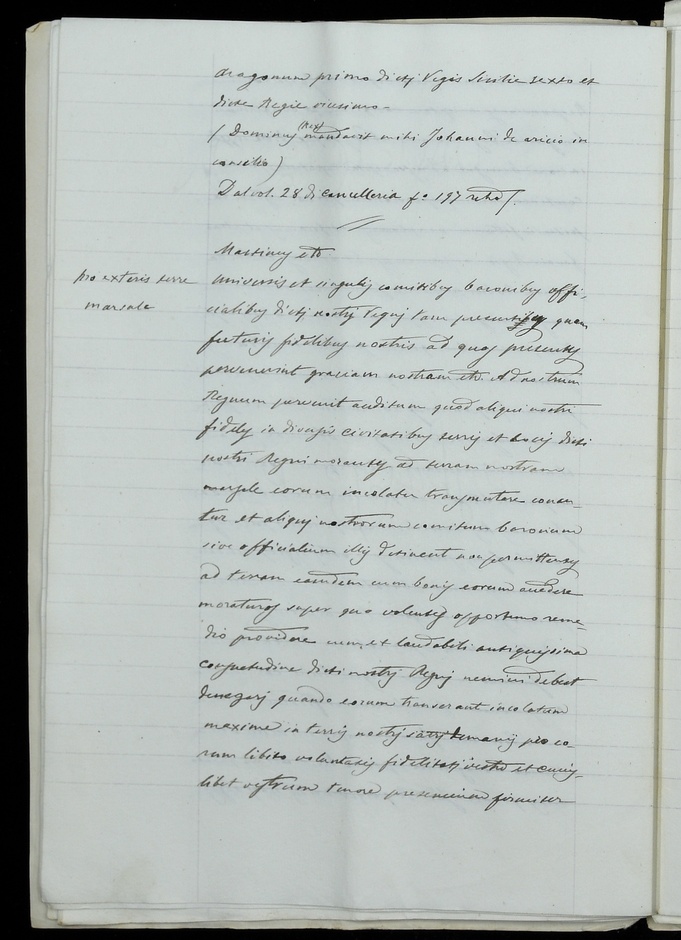 Aragonum primo dicti Regis Sicilie sexto et
dicte Regie vicesimo –
(Dominus (Rex) mandavit mihi Johanni de aricio in
consilio)
Dal vol. 28 di cancelleria fo 197 retro/.
Martinus etc
pro exteris terre
marsale
universis et singulis comitibus baronibus offi-
cialibus dicti nostri Regni tam presentibus quam
futuris fidelibus nostris ad quos presentes
pervenerint graciam nostram etc. Ad nostrum
Regnum pervenit auditum quod aliqui nostri
fideles in diversis civitatibus terris et locis dicti
nostri Regni morantes ad terram nostram
marsale eorum incolatu transmutare conan-
tur et aliqui nostrorum comitum baronum
sive officialium illis detinent non permittentes
ad terram eamdem cum bonis eorum accedere
moraturos super quo volentes opportuno reme-
dio providere cum et laudabili antiquissima
consuetudine dicti nostri Regni nemini debeat
denegari quando eorum transferant incolatum
maxime in terris nostris demanii pro eo-
rum libito voluntatis fidelitati vestre et cuius-
libet vestrum tenore presencium firmiter